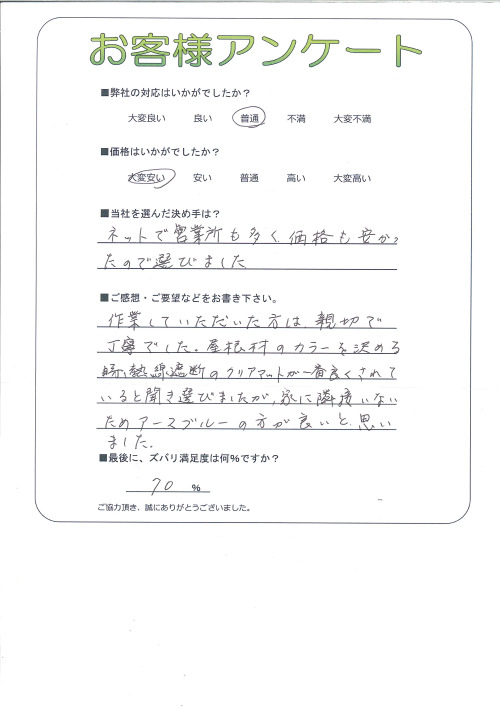 お客様アンケート
■弊社の対応はいかがでしたか？
大変良い 良い 普通 不満 大変不満
■価格はいかがでしたか？
大変安い 安い 普通 高い 大変高い
■当社を選んだ決め手は？
ネットで営業所も多く、価格も安かっ
たので選びました
■ご感想・ご要望などをお書き下さい。
作業していただいた方は、親切で
丁寧でした。屋根材のカラーを決める
時、熱線遮断のクリアマットが一番良くされて
いると聞き選びましたが、家に隣接いない
ためアースブルーの方が良いと思い
ました。
■最後に、ズバリ満足度は何％ですか？
70 %
ご協力頂き、誠にありがとうございました。